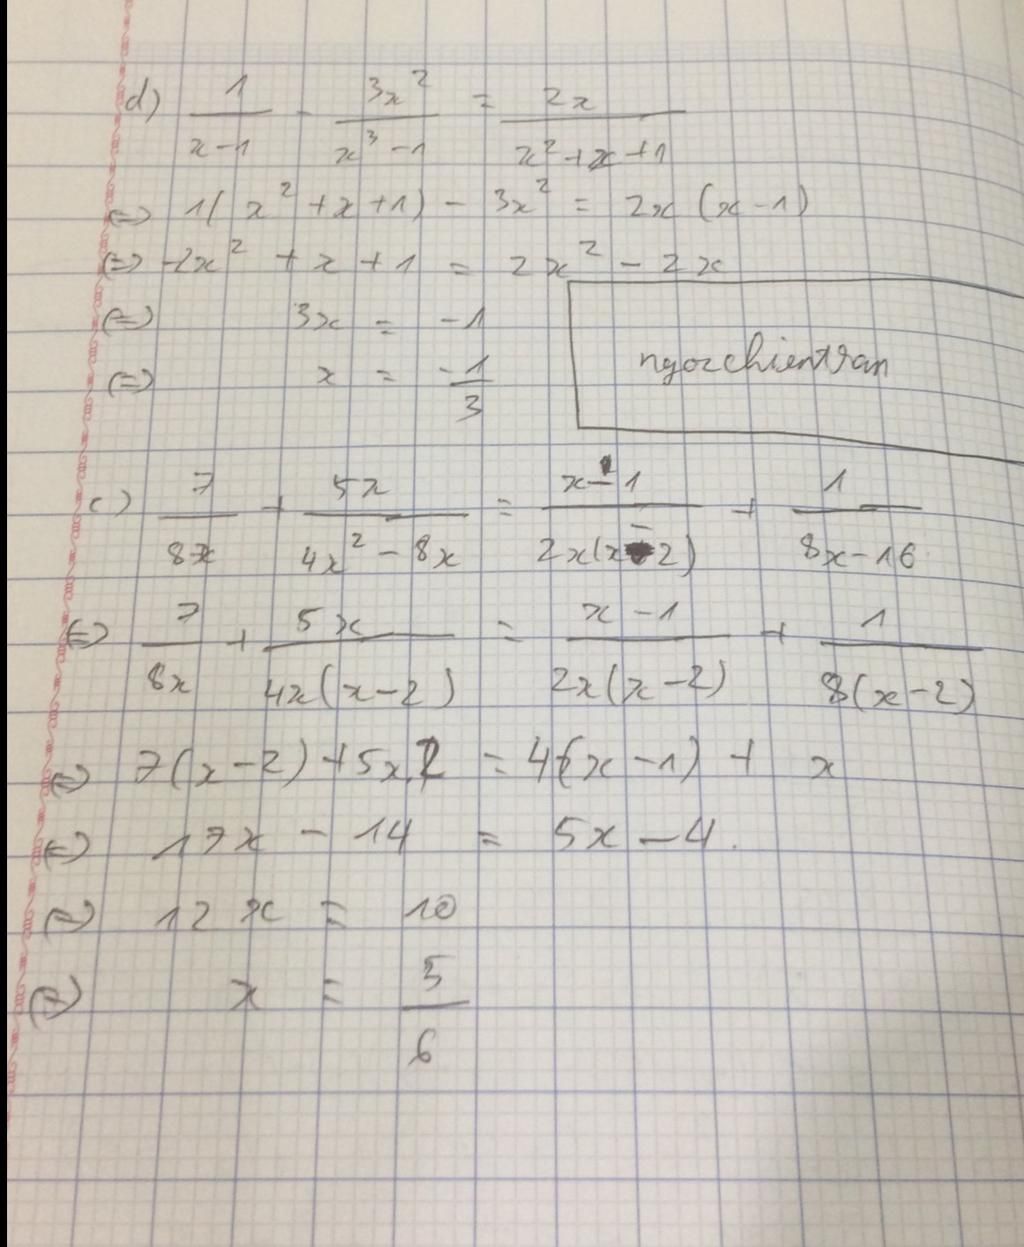 d) 1/(x-1) - 3x²/(x³-1) = 2x/(x²+x+1)
<=> 1(x²+x+1) - 3x² = 2x(x-1)
<=> -2x² + x + 1 = 2x² - 2x
<=> 3x = -1
<=> x = -1/3
ngocchientran
c) 7/8x + 5x/(4x²-8x) = (x-1)/(2x(x-2)) + 1/(8x-16)
<=> 7/8x + 5x/(4x(x-2)) = (x-1)/(2x(x-2)) + 1/(8(x-2))
<=> 7(x-2) + 5x.2 = 4(x-1) + x
<=> 17x - 14 = 5x - 4.
<=> 12x = 10
<=> x = 5/6